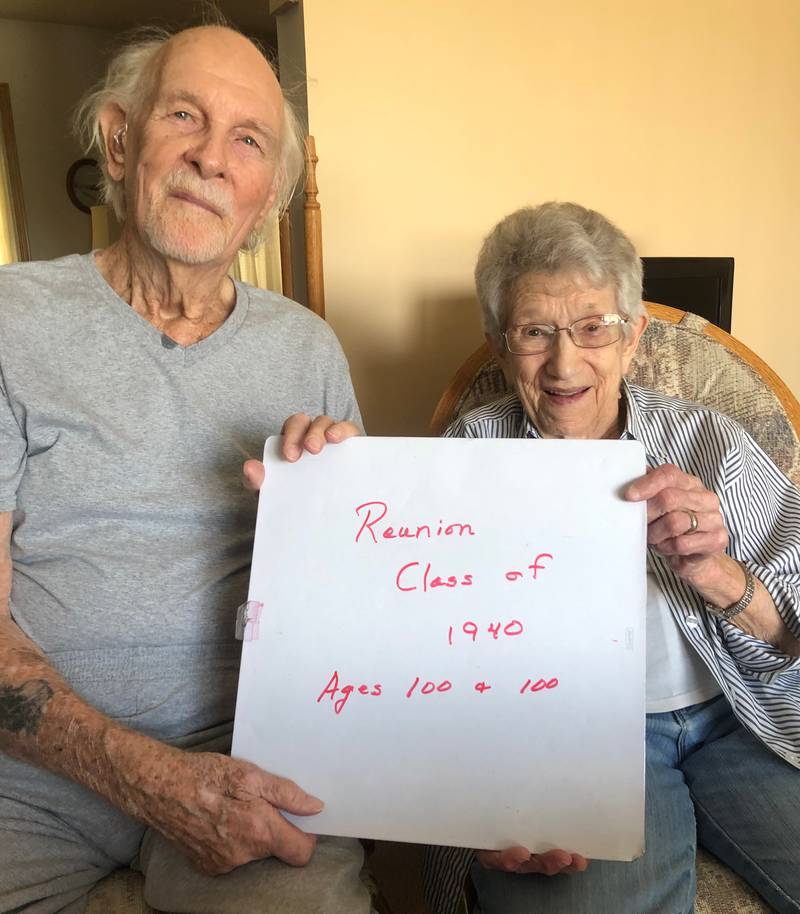 Reunion
Class of
1940
Ages 100 & 100